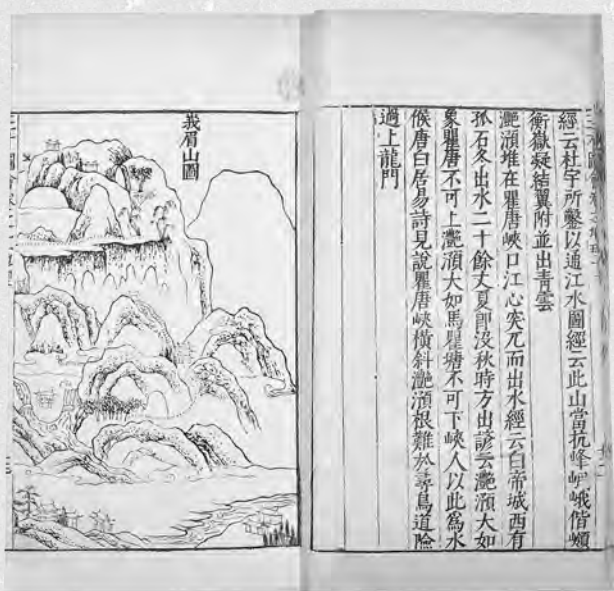 經云杜宇所鑿以通江水圖經云此山當抗峰岷峨偕嶺
衡嶽凝結翼附並出青雲
灔澦堆在瞿唐峽口江心突兀而出水經云白帝城西有
孤石冬出水二十餘丈夏即沒秋時方出諺云灔澦大如
象瞿唐不可上灔澦大如馬瞿塘不可下峽人以此為水
候唐白居易詩見說瞿唐峽橫斜灔澦根難於尋鳥道險
過上龍門
峩眉山圖